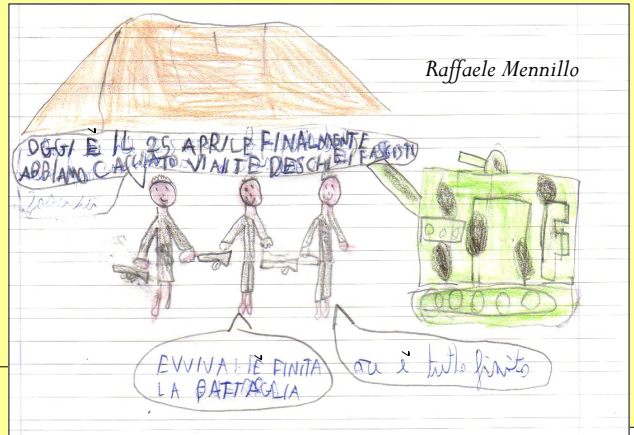 Raffaele Mennillo
OGGI È IL 25 APRILE FINALMENTE
ABBIAMO CACCIATO VIA I TEDESCHI E I FASCISTI
EVVIVA È FINITA
LA BATTAGLIA
ora è tutto finito